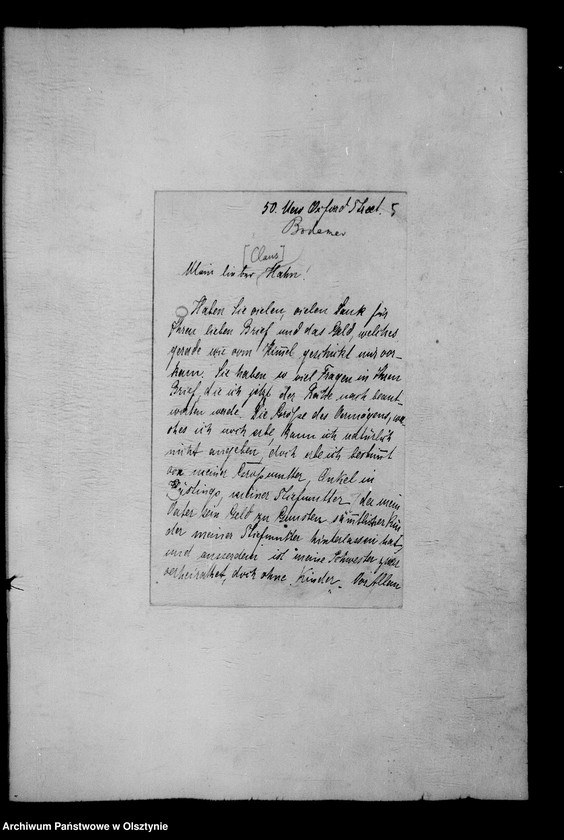 50. New Oxford Street. 5
Bodemer
[Claus]
Mein lieber Hahn!
Haben Sie vielen, vielen Dank für
Ihren lieben Brief und das Geld, welches
gerade wie vom Himmel geschickt mir vor-
kam. Sie haben so viel Fragen in Ihrem
Brief, die ich jetzt der Reihe nach beant-
worten werde. Die Größe des Vermögens, we
ches ich noch erbe, kann ich natürlich
nicht angeben, doch erbe ich bestimmt
von meiner Großmutter, Onkel in
meiner Stiefmutter, da mein
Vater sein Geld zu Gunsten sämtlicher Kin
der meiner Stiefmutter hinterlassen hat,
und ausserdem ist meine Schwester zwar
verheirathet, doch ohne Kinder. Vor Allem
Archiwum Państwowe w Olsztynie